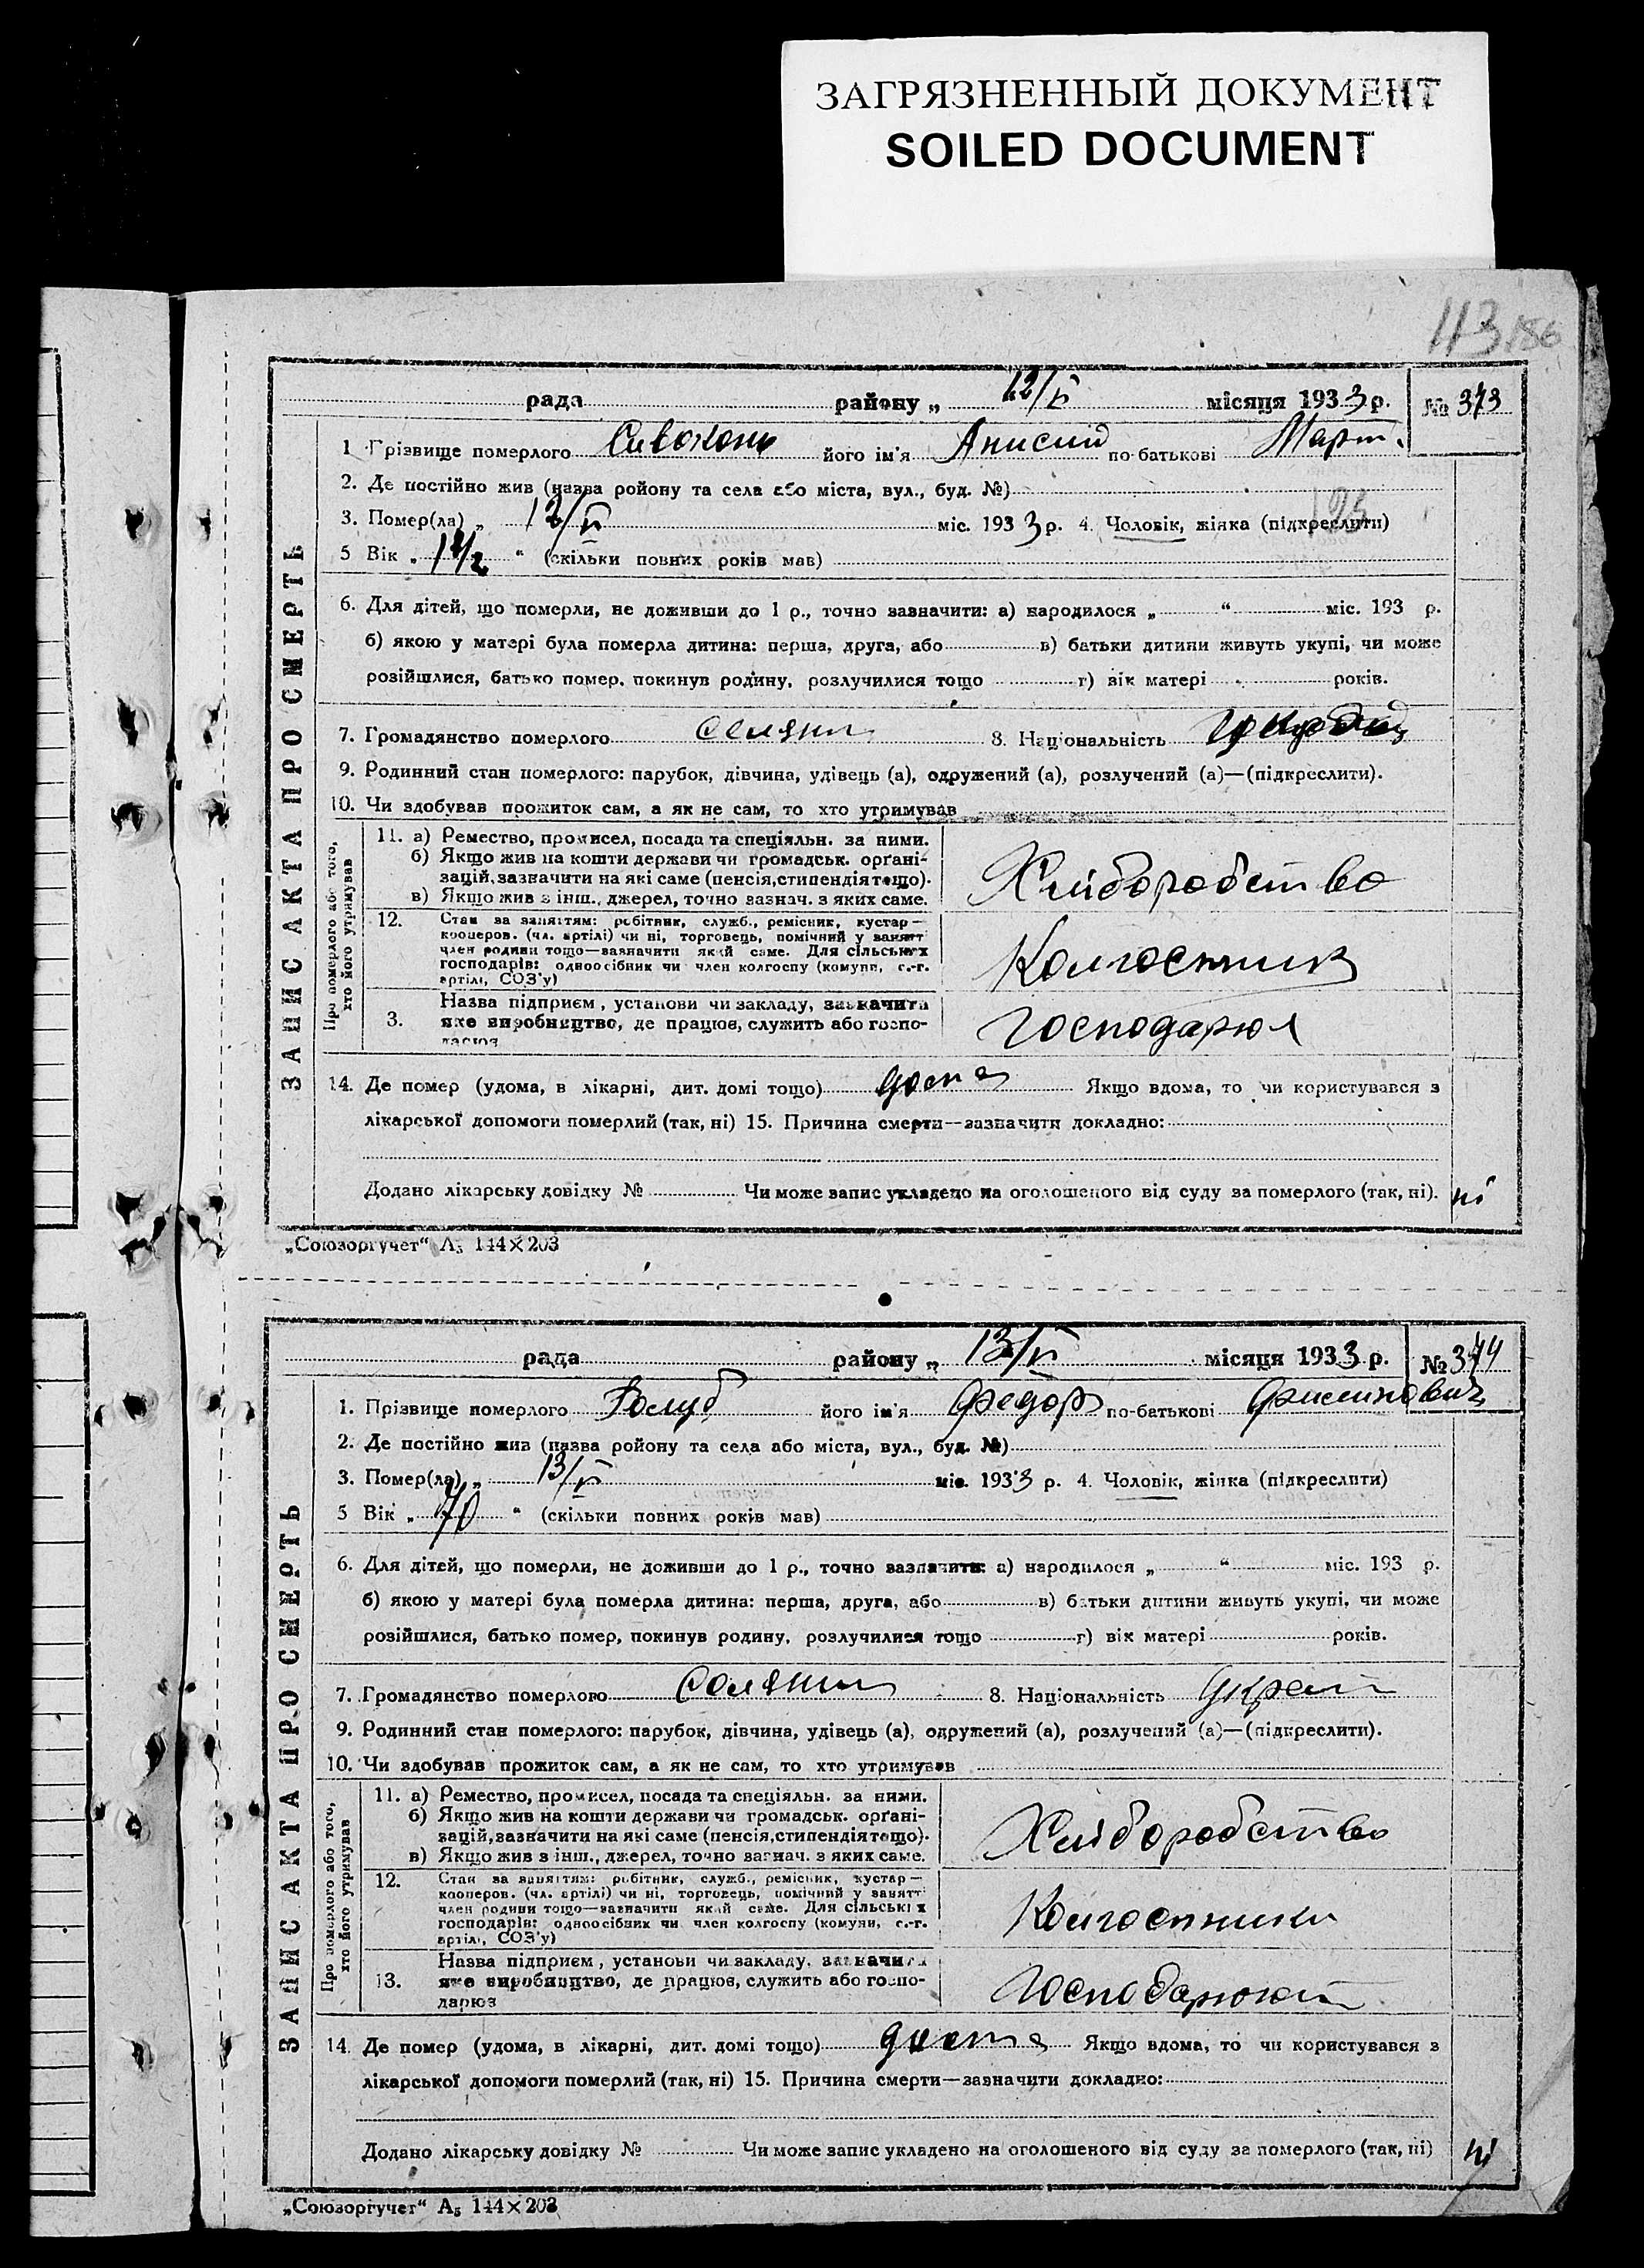 ЗАГРЯЗНЕННЫЙ ДОКУМЕНТ
SOILED DOCUMENT
113 186
рада району „ 12/V місяця 1933 р. № 373
ЗАПИС АКТА ПРО СМЕРТЬ
1 Прізвище померлого Сивоконь його ім'я Анисий по-батькові Март.
2. Де постійно жив (назва ройону та села або міста, вул., буд. №)
3. Помер(ла) „ 12/V міс. 1933 р. 4. Чоловік, жінка (підкреслити)
5 Вік „ 1 1/2 “ (скільки повних років мав)
6. Для дітей, що померли, не доживши до 1 р., точно зазначити: а) народилося „ “ міс. 193 р.
б) якою у матері була померла дитина: перша, друга, або в) батьки дитини живуть укупі, чи може
розійшлися, батько помер, покинув родину, розлучилися тощо г) вік матері років.
7. Громадянство померлого селянин 8. Національність
9. Родинний стан померлого: парубок, дівчина, удівець (а), одружений (а), розлучений (а)—(підкреслити).
10. Чи здобував прожиток сам, а як не сам, то хто утримував
Про померлого або того, хто його утримував
11. а) Ремество, промисел, посада та спеціяльн. за ними.
б) Якщо жив на кошти держави чи громадськ. органі-
зацій, зазначити на які саме (пенсія, стипендія тощо).
в) Якщо жив з інш., джерел, точно зазнач. з яких саме.
Хліборобство
12. Стан за заняттям: робітник, служб., ремісник, кустар—
кооперов. (чл. артілі) чи ні, торговець, помічний у занятт
член родини тощо—зазначити який саме. Для сільських
господарів: одноосібник чи член колгоспу (комуни, с.-г.
артілі, СОЗ'у)
Колгоспник
3. Назва підприєм, установи чи закладу, зазначити
яке виробництво, де працює, служить або госпо-
дарює
Господарюл
14. Де помер (удома, в лікарні, дит. домі тощо) дома Якщо вдома, то чи користувався з
лікарської допомоги померлий (так, ні) 15. Причина смерти—зазначити докладно:
Додано лікарську довідку № Чи може запис укладено на оголошеного від суду за померлого (так, ні). ні
„Союзоргучет“ А₅ 144×203
рада району „ 13/V місяця 1933 р. № 374
ЗАПИС АКТА ПРО СМЕРТЬ
1. Прізвище померлого Голуб його ім'я Федор по-батькові
2. Де постійно жив (назва ройону та села або міста, вул., буд. №)
3. Помер(ла) „ 13/V міс. 1933 р. 4. Чоловік, жінка (підкреслити)
5 Вік „ 70 “ (скільки повних років мав)
6. Для дітей, що померли, не доживши до 1 р., точно зазначити: а) народилося „ “ міс. 193 р.
б) якою у матері була померла дитина: перша, друга, або в) батьки дитини живуть укупі, чи може
розійшлися, батько помер, покинув родину, розлучилися тощо г) вік матері років.
7. Громадянство померлого Селянин 8. Національність Украї
9. Родинний стан померлого: парубок, дівчина, удівець (а), одружений (а), розлучений (а)—(підкреслити).
10. Чи здобував прожиток сам, а як не сам, то хто утримував
Про померлого або того, хто його утримував
11. а) Ремество, промисел, посада та спеціяльн. за ними.
б) Якщо жив на кошти держави чи громадськ. органі-
зацій, зазначити на які саме (пенсія, стипендія тощо).
в) Якщо жив з інш., джерел, точно зазнач. з яких саме.
Хліборобство
12. Стан за заняттям: робітник, служб., ремісник, кустар—
кооперов. (чл. артілі) чи ні, торговець, помічний у занятт
член родини тощо—зазначити який саме. Для сільських
господарів: одноосібник чи член колгоспу (комуни, с.-г.
артілі, СОЗ'у)
Колгоспники
13. Назва підприєм, установи чи закладу, зазначити
яке виробництво, де працює, служить або госпо-
дарює
Господарюют
14. Де помер (удома, в лікарні, дит. домі тощо) дома Якщо вдома, то чи користувався з
лікарської допомоги померлий (так, ні) 15. Причина смерти—зазначити докладно:
Додано лікарську довідку № Чи може запис укладено на оголошеного від суду за померлого (так, ні) ні
„Союзоргучет“ А₅ 144×203